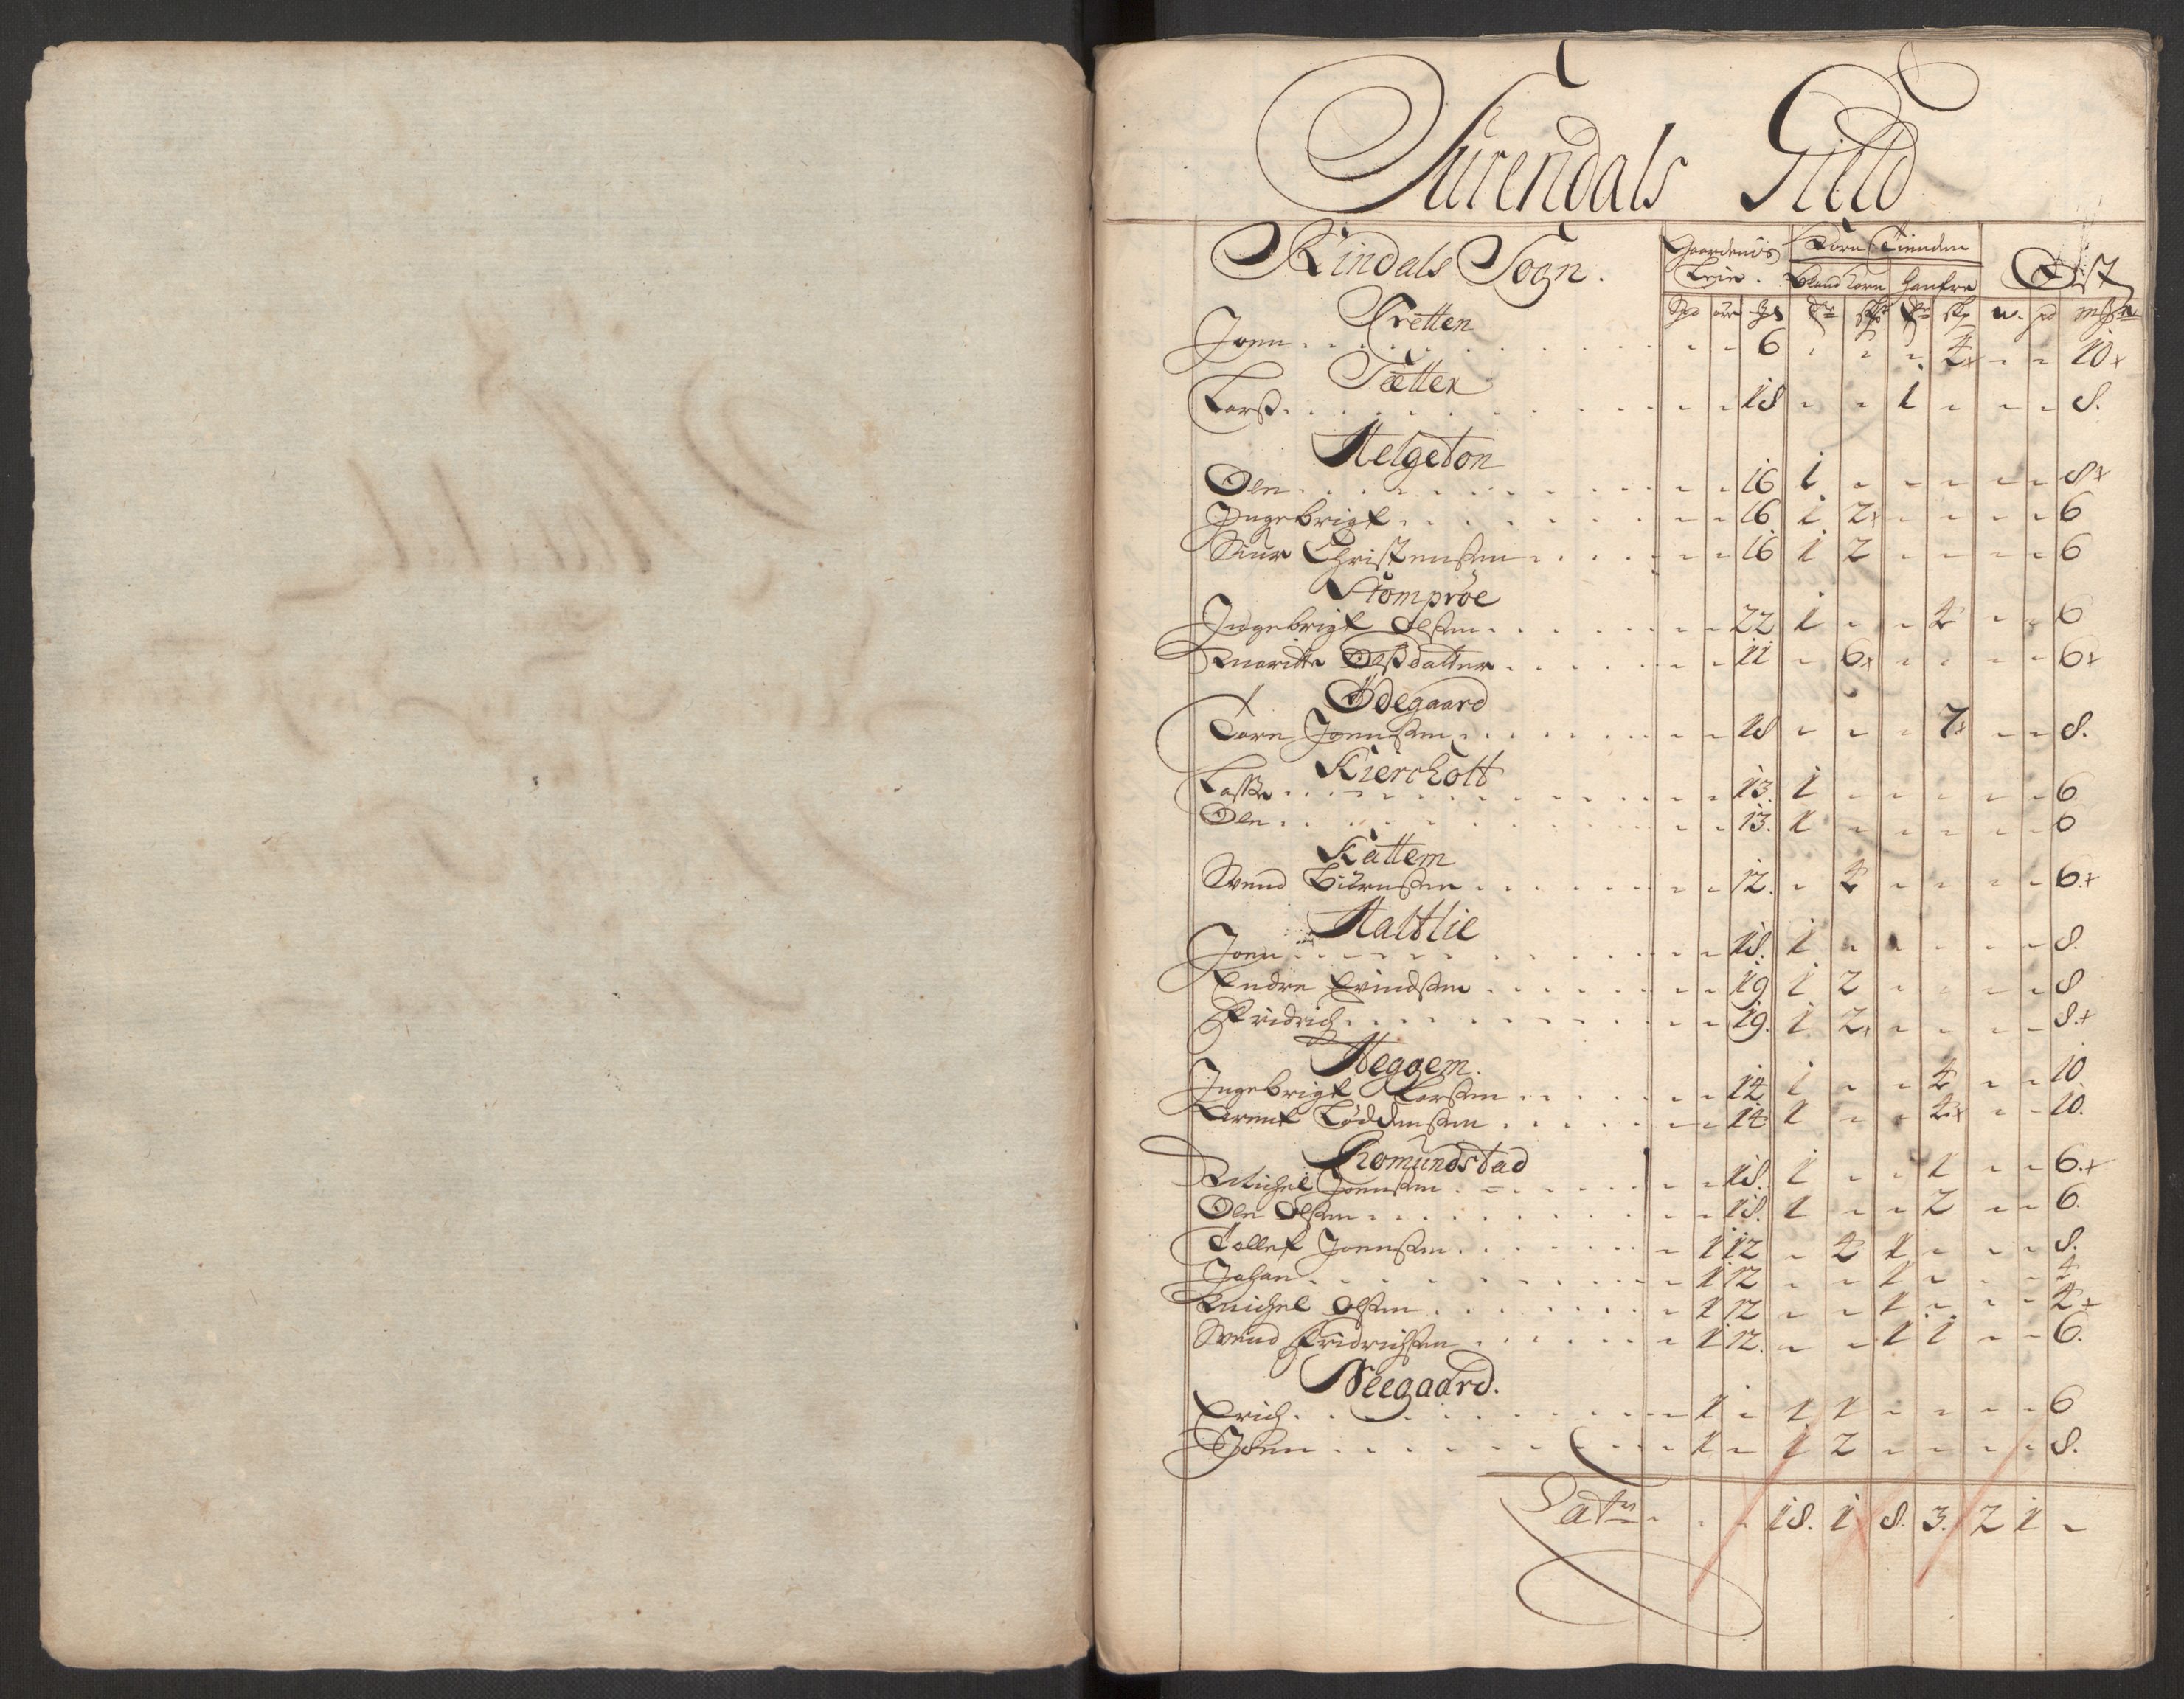 Surendals Gilld
Rindals Sogn.
Gaardenis Leie.
Korn Tienden
Bland korn
Hanfre
Ost
Spd ører
Tretten
Joen 6 4+ 10+
Tætter
Larß 18 1 8.
Helgeton
Ole 16 1 8+
Ingebrigt 16 1 2+ 6
Siur Christensen 16 1 2 6
Stomprøe
Ingebrigt Olsen 22 1 4 6
Maritte Olsdatter 11 6+ 6+
Ødegaard
Tore Joensen 18 7+ 8.
Kiercholt
Lasse 13. 1 6
Ole 13. 1 6
Kattem
Svend Biørnsen 12. 4 6.+
Haltlie
Joen 18. 1 8.
Endre Evindsen 19 1 2 8
Fridrich 19. 1 2+ 8.+
Heggem.
Ingebrigt Larsen 14 1 4 10
Arent Toddensen 14 1 4+ 10.
Romundstad
Michel Joensen 18. 1 1 6.+
Ole Olsen 18. 1 2 6.
Tollef Joensen 1 12 4 1 8.
Johan 1 12 1 4
Michel Olsen 1 12 1 4+
Svend Fridrichsen 1 12. 1 1 6.
Neegaard.
Erich 1 1 1 6
Joen 1 1 2 8.
Lats 18. 1 8. 3. 2 1